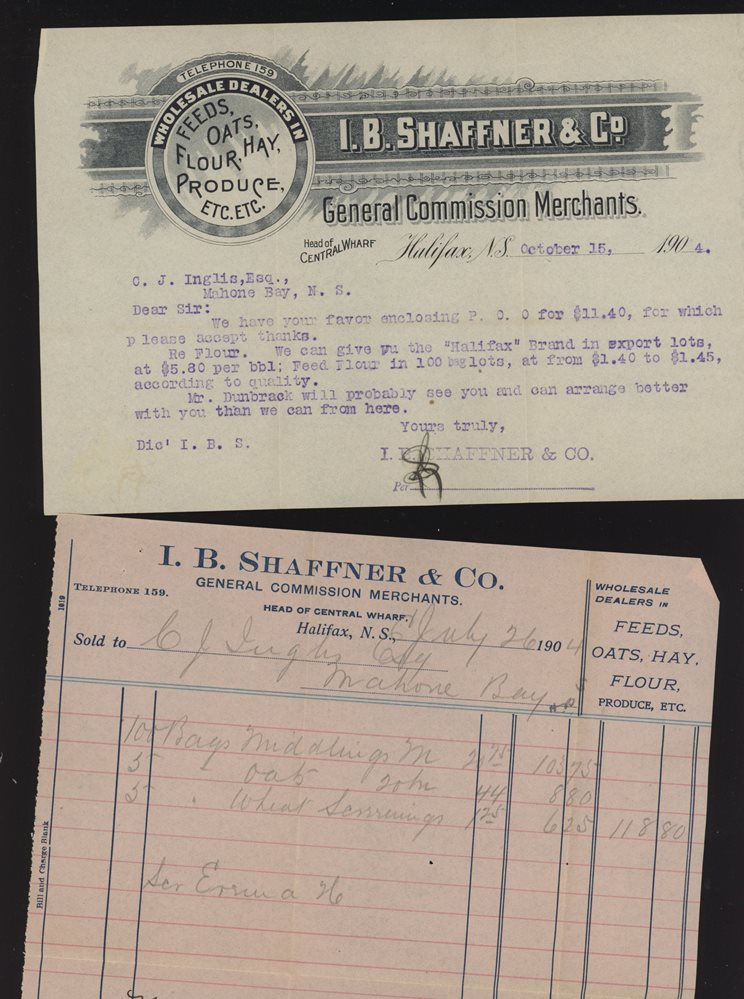 TELEPHONE 159
WHOLESALE DEALERS IN
FEEDS,
OATS,
FLOUR, HAY,
PRODUCE,
ETC. ETC.
I. B. SHAFFNER & CO
General Commission Merchants.
Head of
CENTRAL WHARF
Halifax, N.S. October 15, 1904.
C. J. Inglis, Esq.,
Mahone Bay, N. S.
Dear Sir:
We have your favor enclosing P. O. O for $11.40, for which
please accept thanks.
Re Flour. We can give yu the "Halifax" Brand in export lots,
at $5.80 per bbl; Feed Flour in 100 bag lots, at from $1.40 to $1.45,
according to quality.
Mr. Dunbrack will probably see you and can arrange better
with you than we can from here.
Yours truly,
Dic' I. B. S.
I. B. SHAFFNER & CO.
Per
I. B. SHAFFNER & CO.
TELEPHONE 159.
GENERAL COMMISSION MERCHANTS.
HEAD OF CENTRAL WHARF.
Halifax, N. S., July 26 1904
Sold to C J Inglis Esq
Mahone Bay NS
WHOLESALE
DEALERS IN
FEEDS,
OATS, HAY,
FLOUR,
PRODUCE, ETC.
1019
100 Bags Middlings M 20 75 103 75
5 " Oats 44 8 80
5 " Wheat Screenings 1 25 6 25 118 80
Bill and Charge Blank